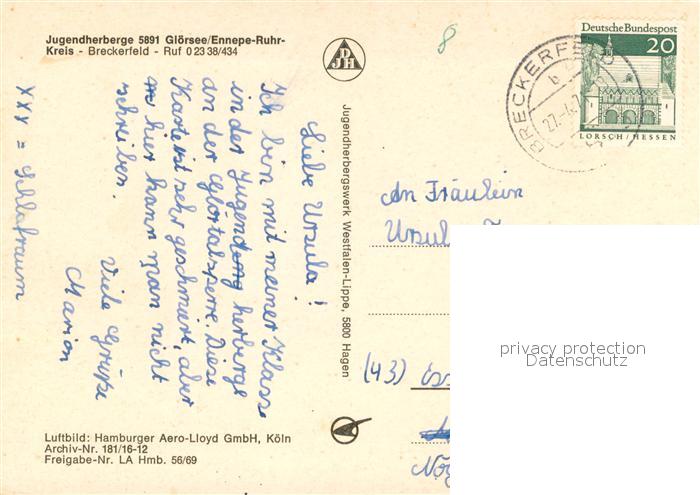 Jugendherberge 5891 Glörsee/Ennepe-Ruhr-
Kreis - Breckerfeld - Ruf 0 23 38/434
DJH
8
Deutsche Bundespost
20
LORSCH/HESSEN
BRECKERFELD
b
27.-4.7
Liebe Ursula!
Ich bin mit meiner Klasse
in der Jugendherberge
an der Glörtalsperre. Diese
Karte ist sehr geschmiert, aber
hier kann man nicht
schreiben.
Viele Grüße
Marion
XXX = Schlafraum
Jugendherbergswerk Westfalen-Lippe, 5800 Hagen
An Fräulein
(43)
privacy protection
Datenschutz
Luftbild: Hamburger Aero-Lloyd GmbH, Köln
Archiv-Nr. 181/16-12
Freigabe-Nr. LA Hmb. 56/69